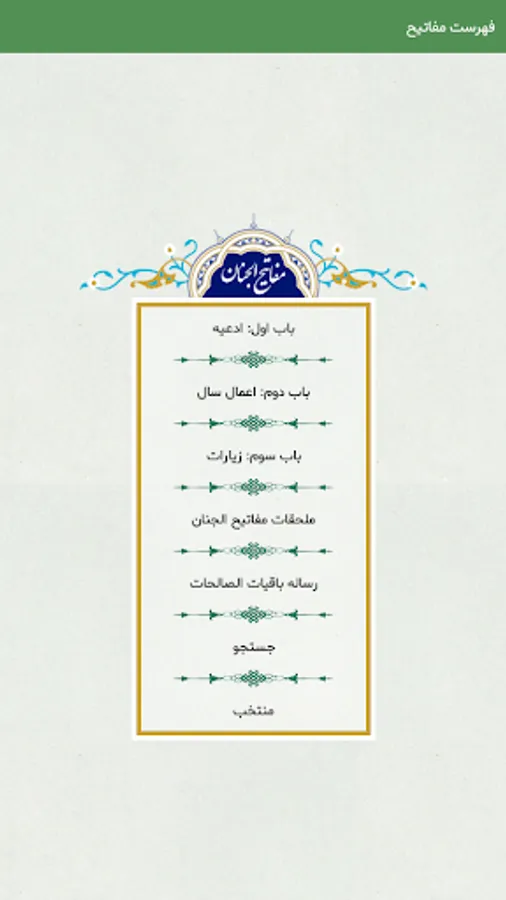 فهرست مفاتیح
مفاتیح الجنان
باب اول: ادعیه
باب دوم: اعمال سال
باب سوم: زیارات
ملحقات مفاتیح الجنان
رساله باقیات الصالحات
جستجو
منتخب